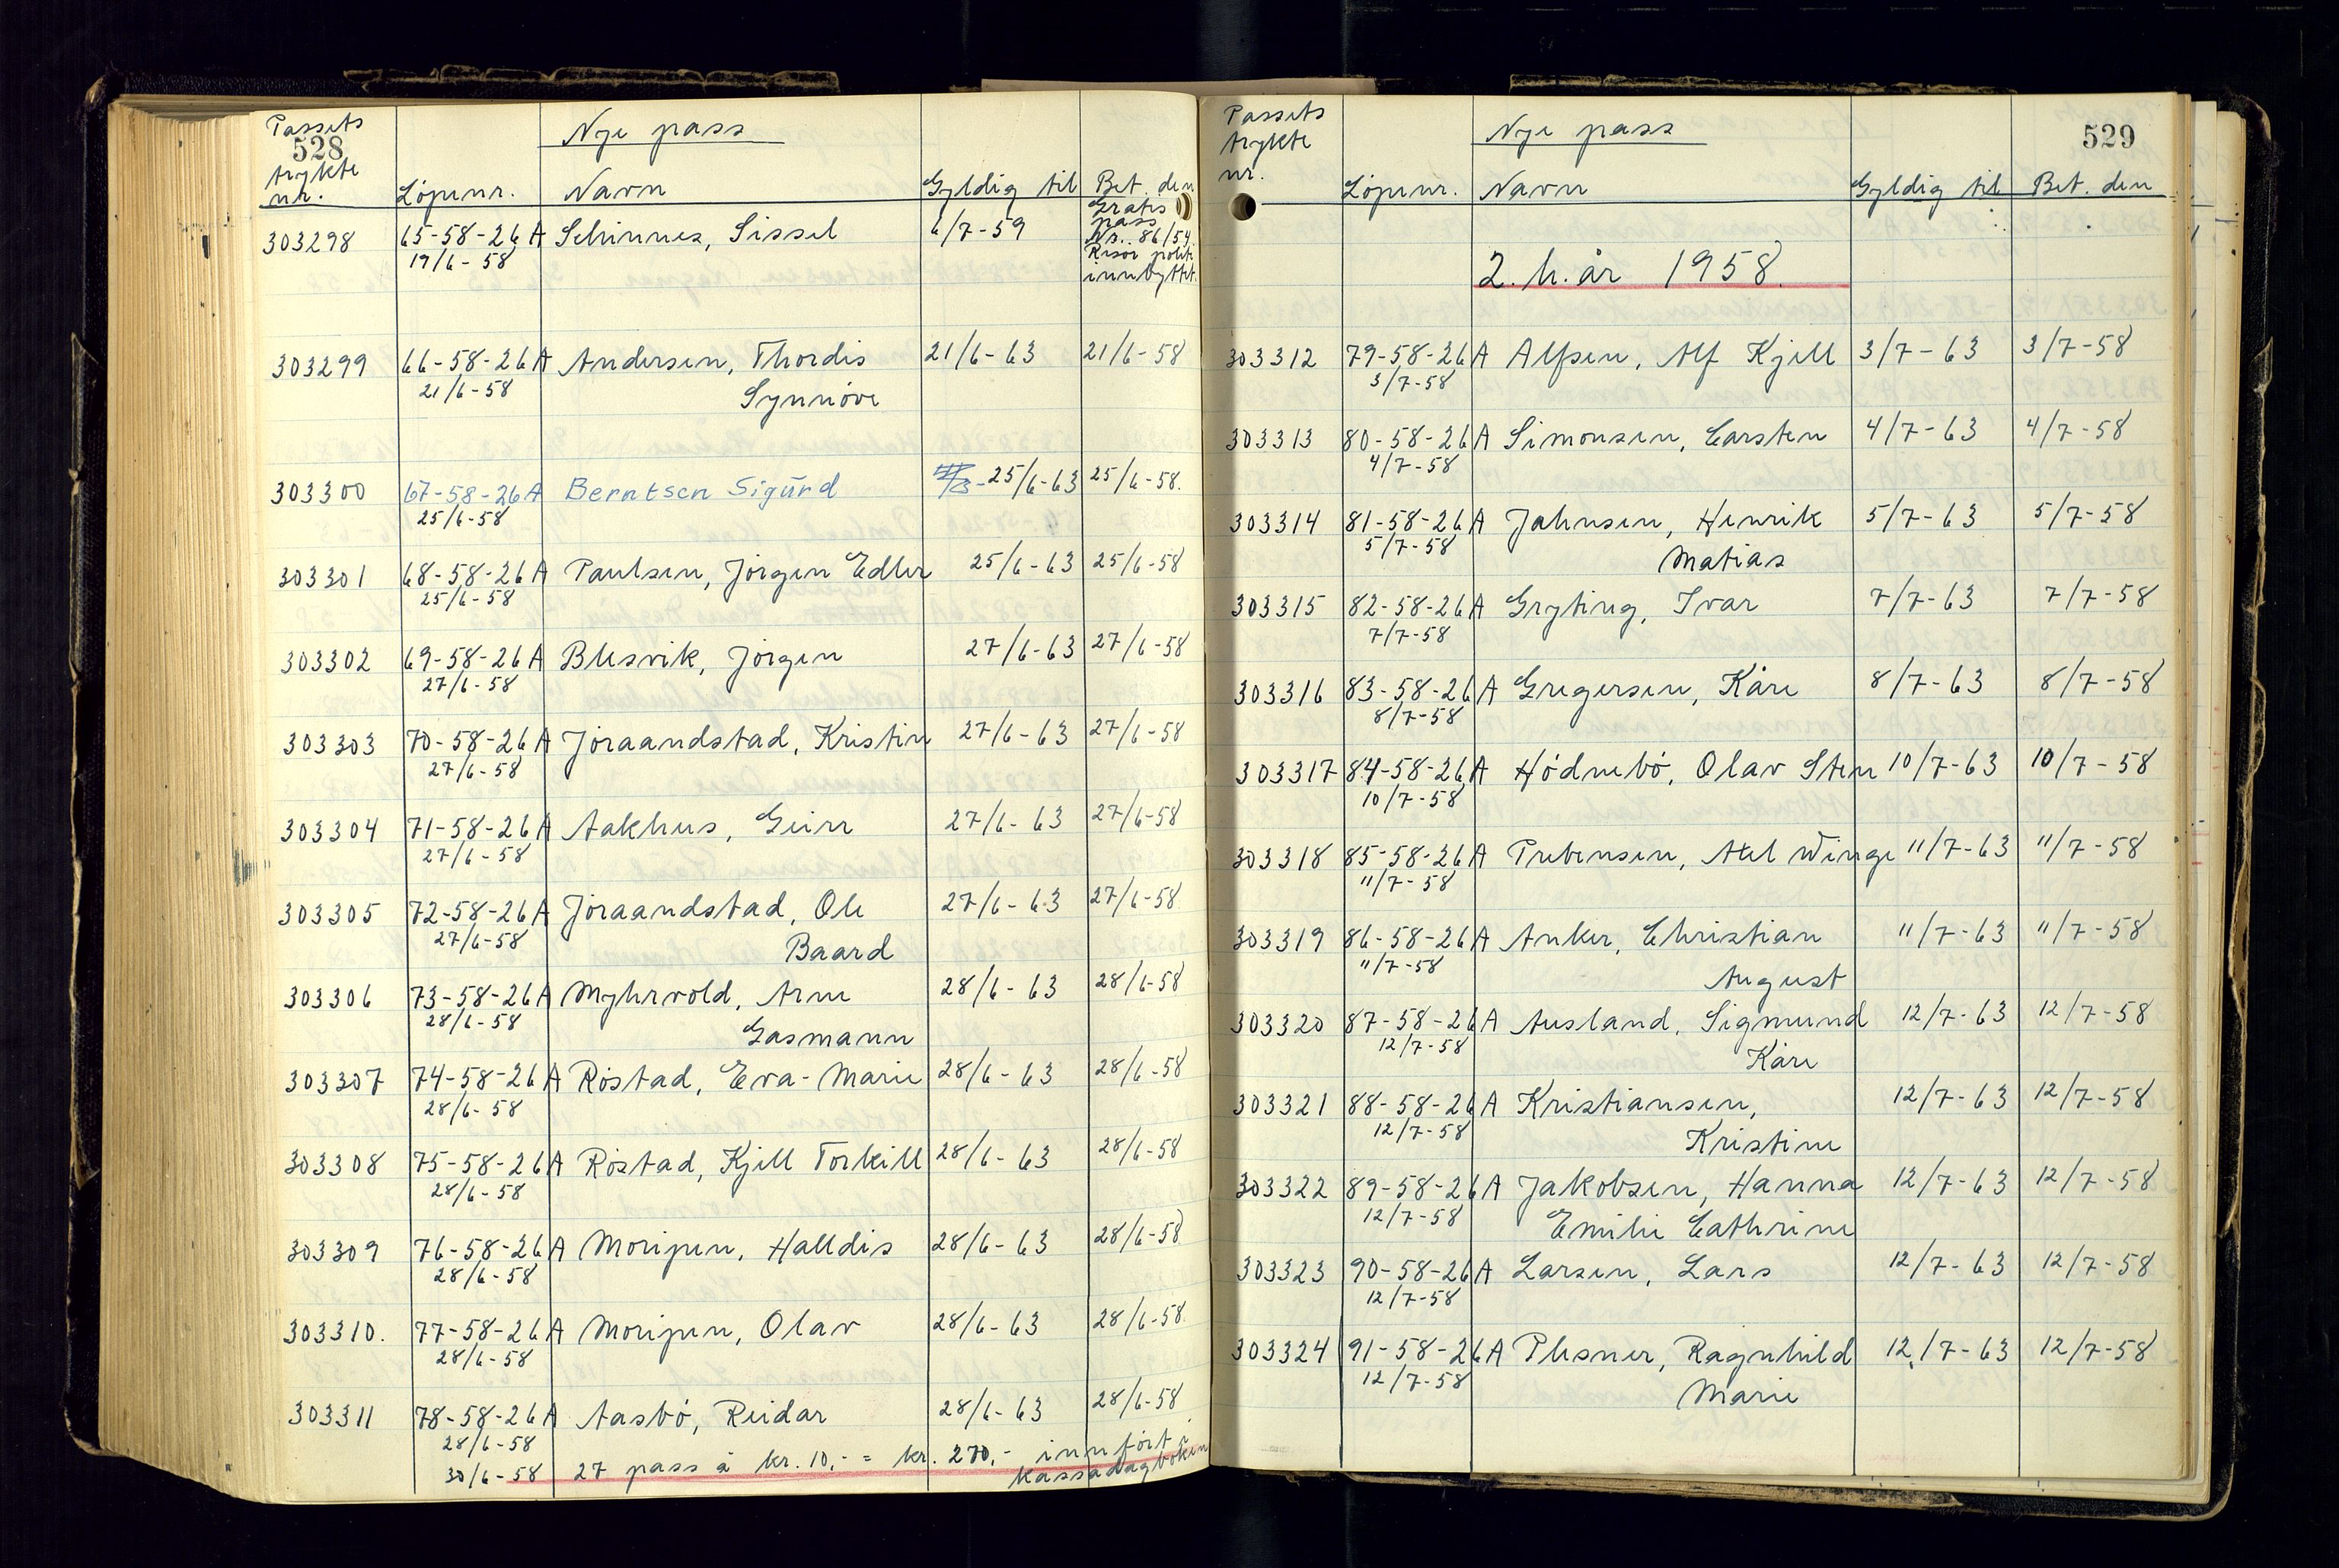 Passets
528
trykte
nr.
Nye pass
Löpenr.
Navn
Gyldig til
Bet. den
303298 65-58-26 A Schinnes, Sissel 6/7-59 Gratis
19/6-58 pass
Nr. 86/54
Risör politi
innbyttet.
303299 66-58-26 A Andersen, Thordis 21/6-63 21/6-58
21/6-58 Synnöve
303300 67-58-26 A Berntsen Sigurd 25/6-63 25/6-58.
25/6-58
303301 68-58-26 A Paulsen, Jörgen Edler 25/6-63 25/6-58
25/6-58
303302 69-58-26 A Blesvik, Jörgen 27/6-63 27/6-58
27/6-58
303303 70-58-26 A Jöraandstad, Kristin 27/6-63 27/6-58
27/6-58
303304 71-58-26 A Aakhus, Geirr 27/6-63 27/6-58
27/6-58
303305 72-58-26 A Jöraandstad, Ole 27/6-63 27/6-58
27/6-58 Baard
303306 73-58-26 A Myhrvold, Arne 28/6-63 28/6-58
28/6-58 Gasmann
303307 74-58-26 A Röstad, Eva-Marie 28/6-63 28/6-58
28/6-58
303308 75-58-26 A Röstad, Kjell Torkill 28/6-63 28/6-58
28/6-58
303309 76-58-26 A Moripen, Halldis 28/6-63 28/6-58
28/6-58
303310. 77-58-26 A Moripen, Olav 28/6-63 28/6-58.
28/6-58
303311 78-58-26 A Aasbö, Reidar 28/6-63 28/6-58
28/6-58
30/6-58 27 pass à kr. 10,- = kr. 270,- innfört i
kassadagboken
Passets
trykte
nr.
Nye pass
529
Löpenr.
Navn
Gyldig til
Bet. den
2. h. år 1958.
303312 79-58-26 A Alfsen, Alf Kjell 3/7-63 3/7-58
3/7-58
303313 80-58-26 A Simonsen, Carsten 4/7-63 4/7-58
4/7-58
303314 81-58-26 A Jahnsen, Henrik 5/7-63 5/7-58
5/7-58 Matias
303315 82-58-26 A Gryting, Ivar 7/7-63 7/7-58
7/7-58
303316 83-58-26 A Gregersen, Kåre 8/7-63 8/7-58
8/7-58
303317 84-58-26 A Hödnebö, Olav Sten 10/7-63 10/7-58
10/7-58
303318 85-58-26 A Prebensen, Axel Winge 11/7-63 11/7-58
11/7-58
303319 86-58-26 A Anker, Christian 11/7-63 11/7-58
11/7-58 August
303320 87-58-26 A Ausland, Sigmund 12/7-63 12/7-58
12/7-58 Kåre
303321 88-58-26 A Kristiansen, 12/7-63 12/7-58
12/7-58 Kristine
303322 89-58-26 A Jakobsen, Hanna 12/7-63 12/7-58
12/7-58 Emilie Cathrine
303323 90-58-26 A Larsen, Lars 12/7-63 12/7-58
12/7-58
303324 91-58-26 A Plesner, Ragnhild 12/7-63 12/7-58
12/7-58 Marie